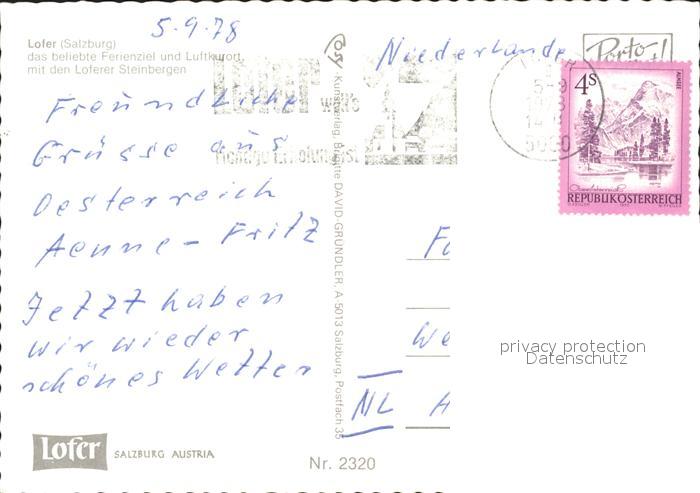 5.9.78
Lofer (Salzburg)
das beliebte Ferienziel und Luftkurort
mit den Loferer Steinbergen
Freundliche
Grüsse aus
Oesterreich
Aenne - Fritz
Jetzt haben
wir wieder
schönes Wetter
Lofer SALZBURG AUSTRIA
Kunstverlag, Brigitte DAVID-GRÜNDLER, A 5013 Salzburg, Postfach 35
Nr. 2320
Niederlande
Porto
4S
ALMSEE
Oberösterreich
REPUBLIK ÖSTERREICH
5090
We
NL A
privacy protection
Datenschutz